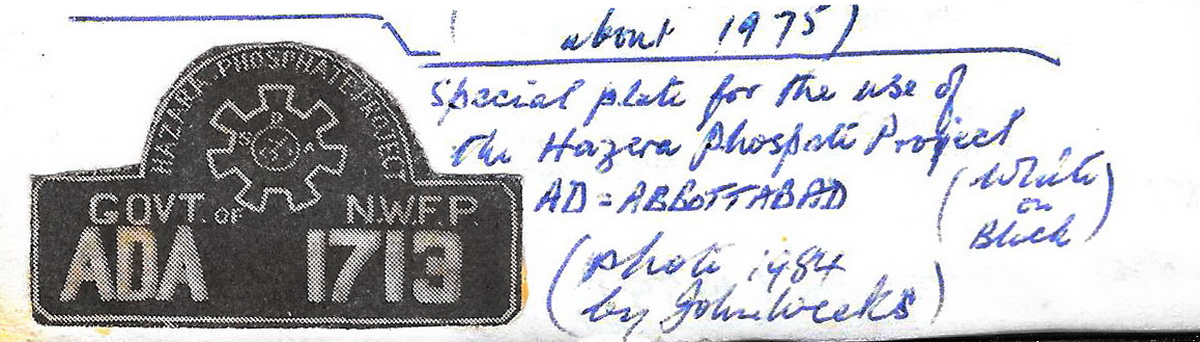 about 1975)
Special plate for the use of
the Hazera Phospate Project
AD = ABBOTTABAD
(White
on
Black)
(photo 1984
by John Weeks)
HAZARA PHOSPHATE PROJECT
GOVT. OF N.W.F.P
ADA 1713